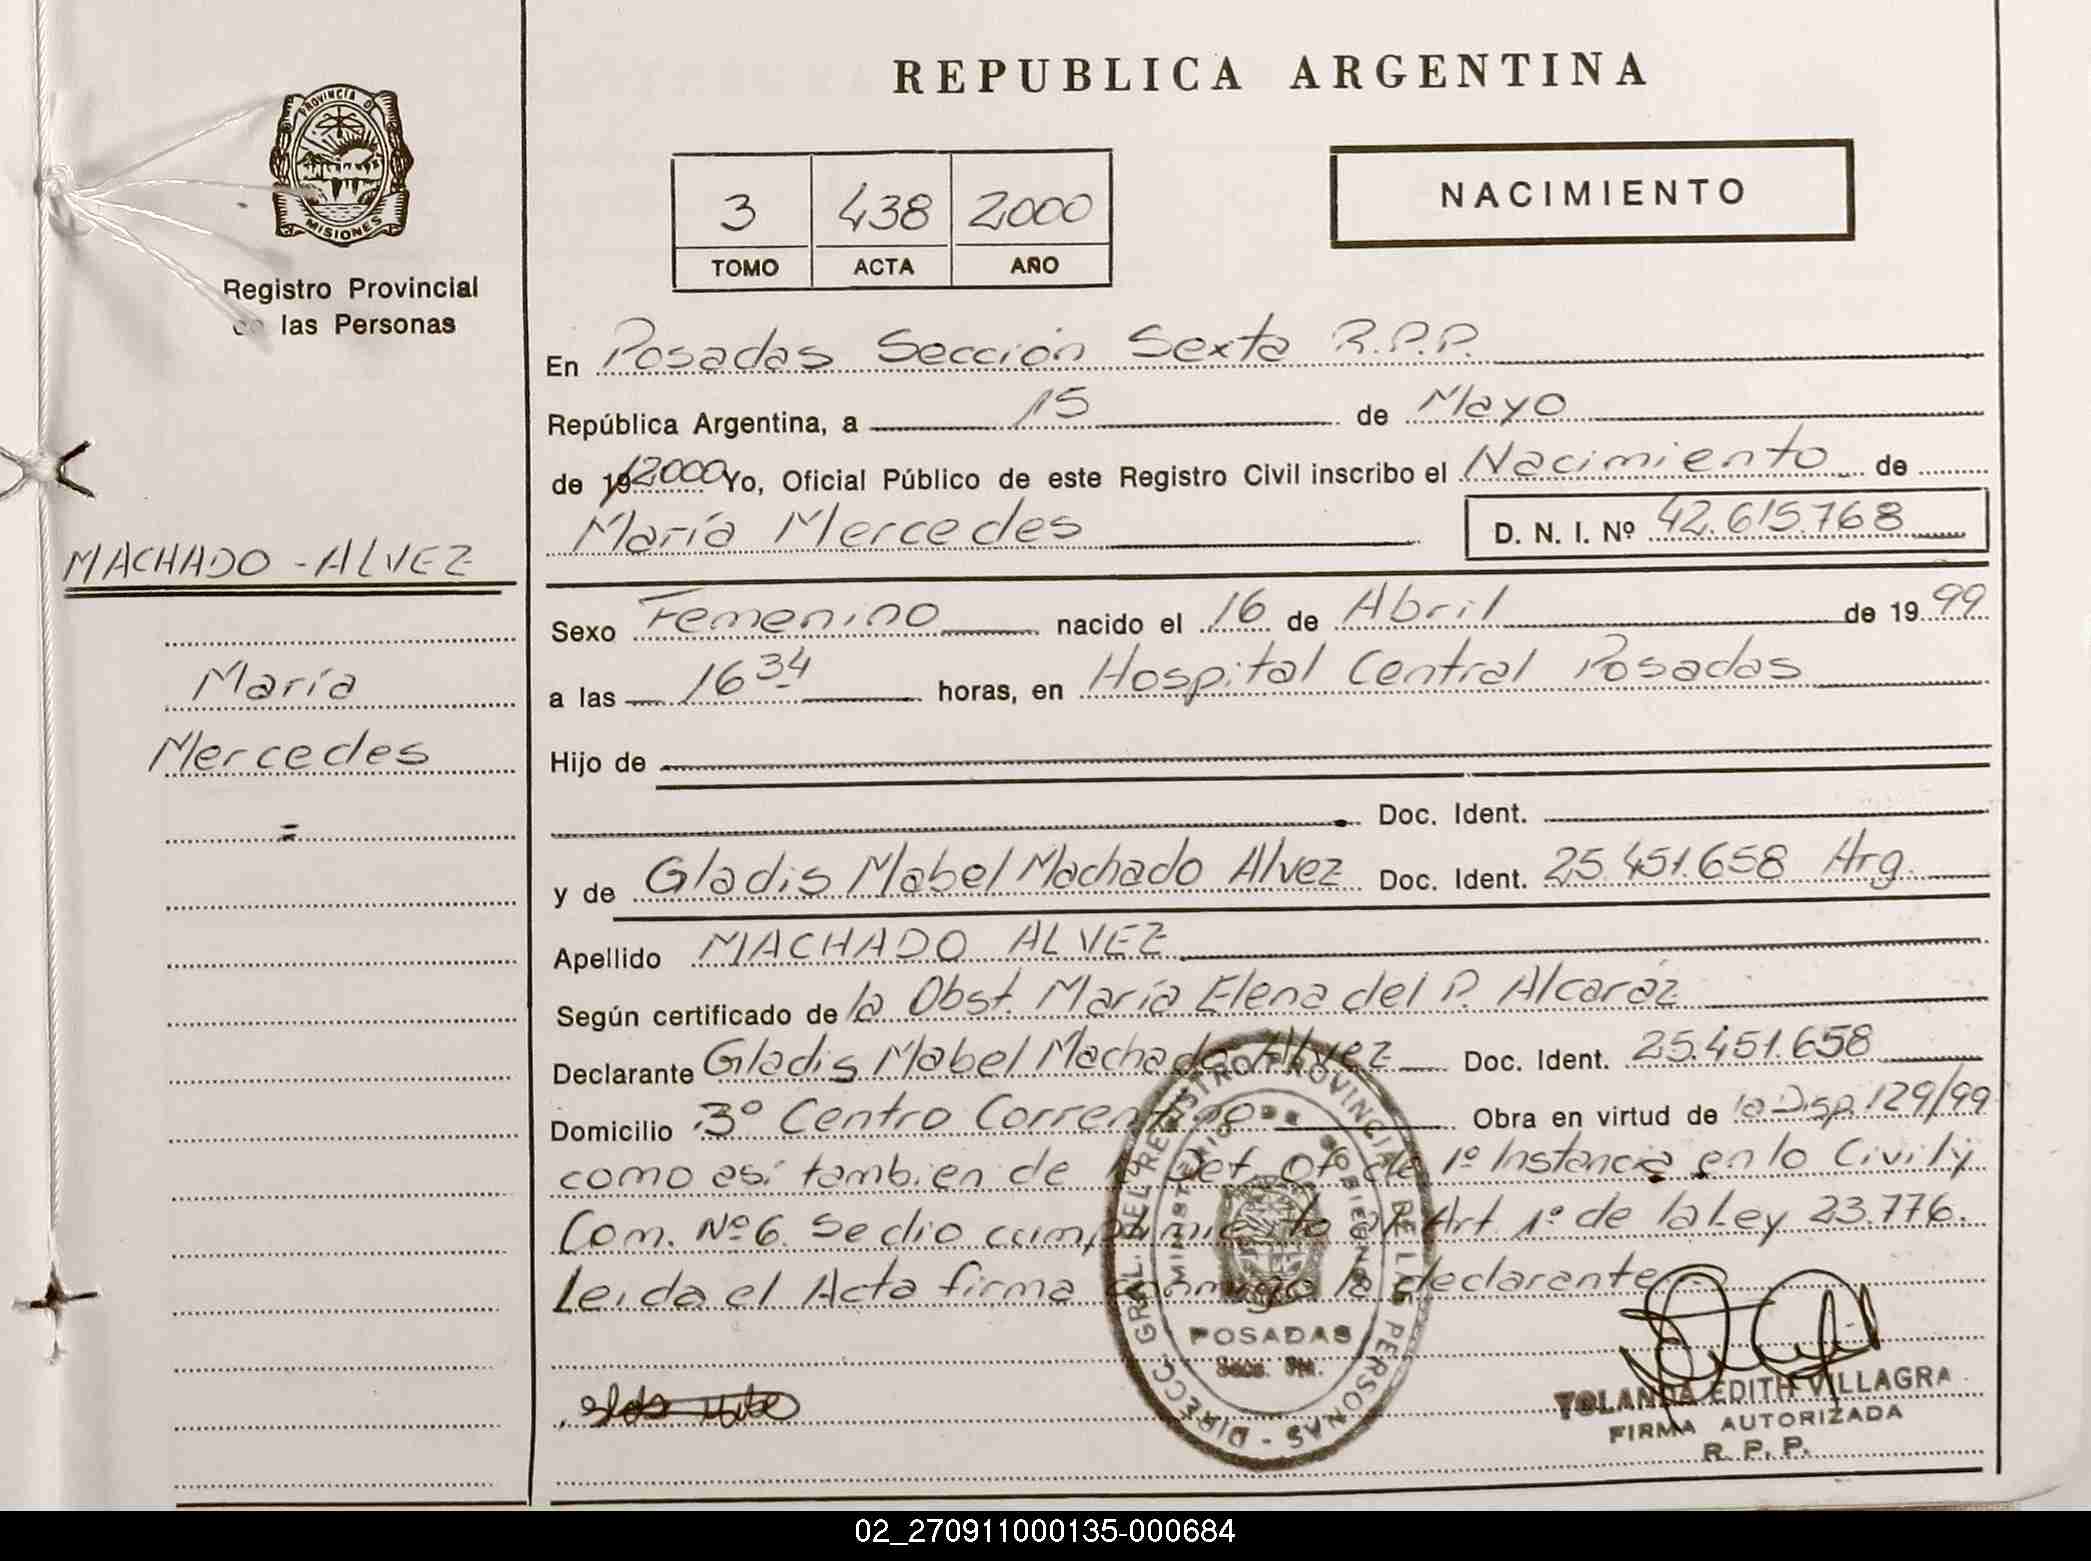 REPUBLICA ARGENTINA
PROVINCIA D
MISIONES
Registro Provincial
las Personas
3 438 2000
TOMO ACTA AÑO
NACIMIENTO
En Posadas Sección Sexta R.P.P.
República Argentina, a 15 de Mayo
de 19 2000 Yo, Oficial Público de este Registro Civil inscribo el Nacimiento de
María Mercedes D. N. I. Nº 42.615.768
MACHADO - ALVEZ
María
Mercedes
Sexo Femenino nacido el 16 de Abril de 19 99
a las 16 34 horas, en Hospital Central Posadas
Hijo de
Doc. Ident.
y de Gladis Mabel Machado Alvez Doc. Ident. 25.451.658 Arg.
Apellido MACHADO ALVEZ
Según certificado de la Obst. María Elena del P. Alcaráz
Declarante Gladis Mabel Machado Alvez Doc. Ident. 25.451.658
Domicilio 3º Centro Correntino Obra en virtud de la Disp. 129/99
como así tambien de Def. Of. de 1º Instancia en lo Civil y
Com. Nº 6. Se dio cumplimiento al Art 1º de la Ley 23.776.
Leida el Acta firma conmigo la declarante
DIRECC. GRAL. DEL REGISTRO PROVINCIAL DE LAS PERSONAS -
MINISTERIO DE GOBIERNO
POSADAS
YOLANDA EDITH VILLAGRA
FIRMA AUTORIZADA
R. P. P.
02_270911000135-000684